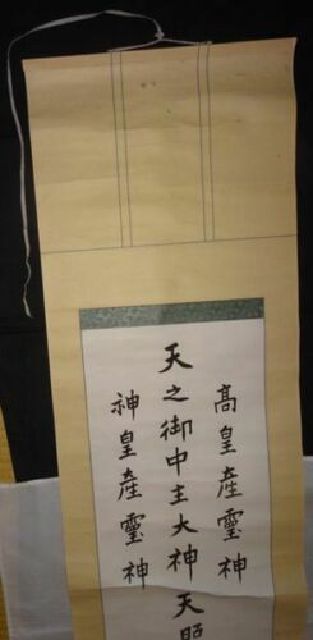 高皇産霊神
天之御中主大神天照
神皇産霊神